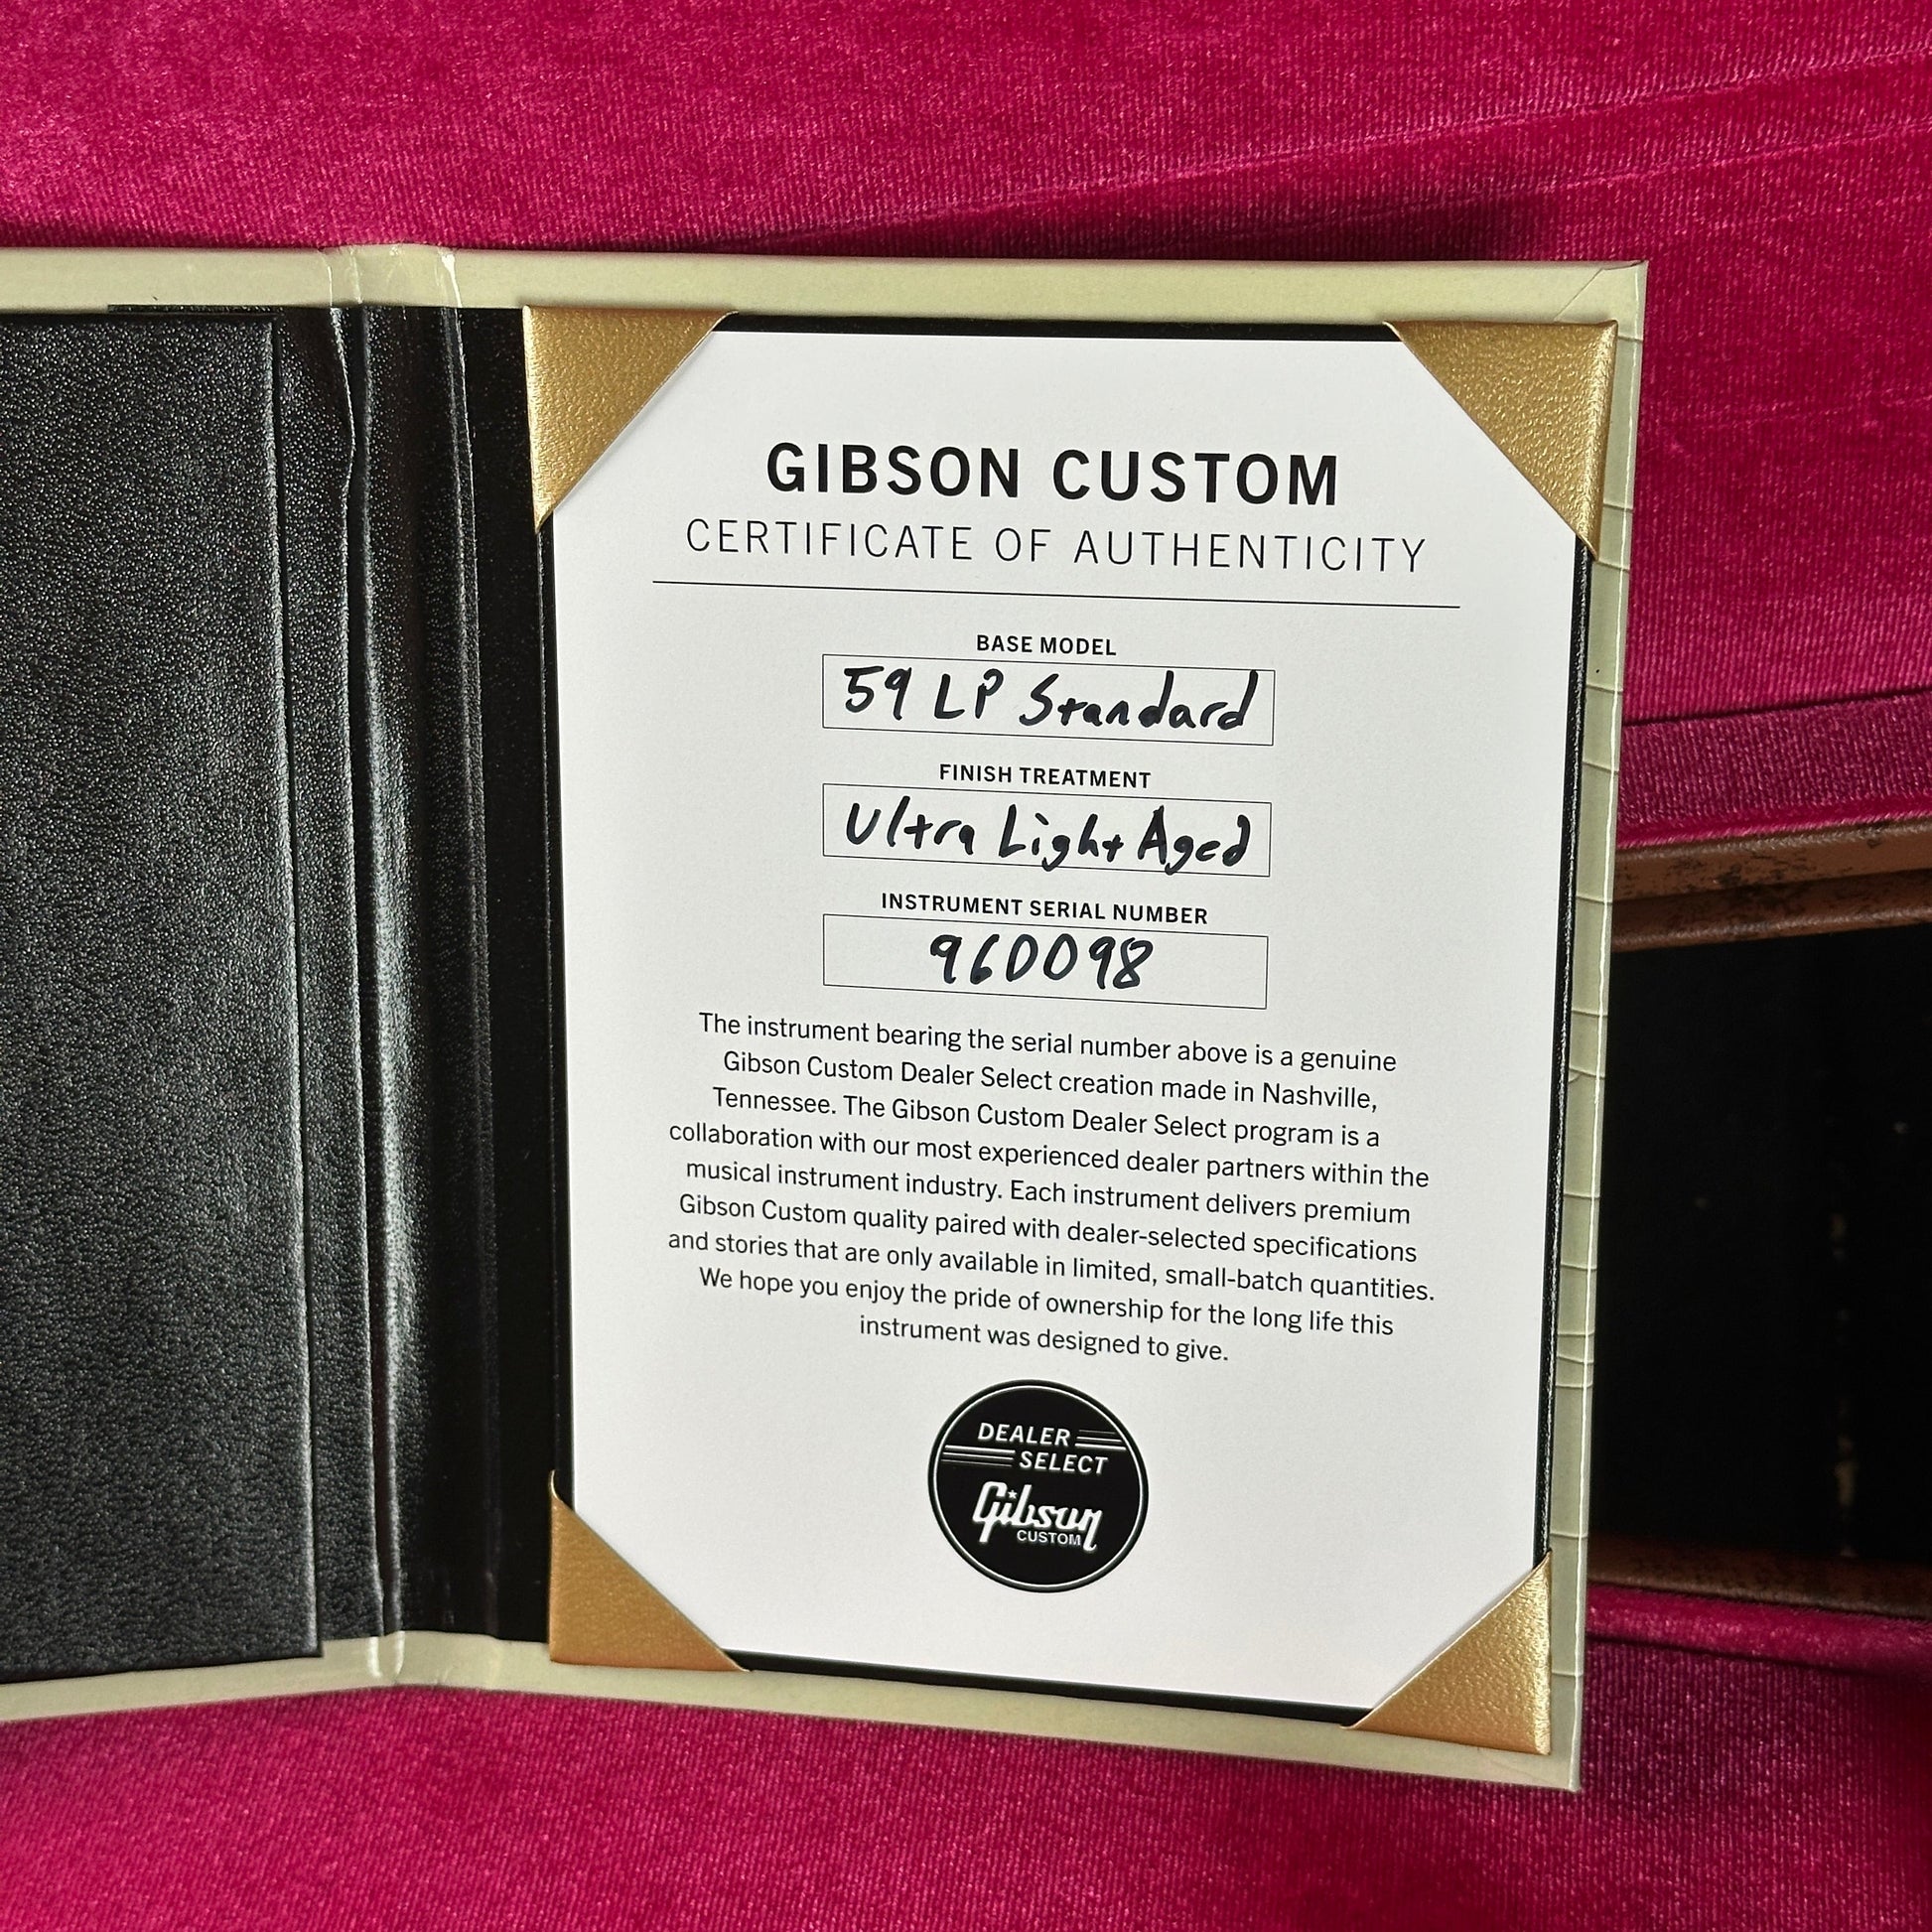 GIBSON CUSTOM
CERTIFICATE OF AUTHENTICITY
BASE MODEL
59 LP Standard
FINISH TREATMENT
Ultra Light Aged
INSTRUMENT SERIAL NUMBER
960098
The instrument bearing the serial number above is a genuine
Gibson Custom Dealer Select creation made in Nashville,
Tennessee. The Gibson Custom Dealer Select program is a
collaboration with our most experienced dealer partners within the
musical instrument industry. Each instrument delivers premium
Gibson Custom quality paired with dealer-selected specifications
and stories that are only available in limited, small-batch quantities.
We hope you enjoy the pride of ownership for the long life this
instrument was designed to give.
DEALER
SELECT
Gibson
CUSTOM